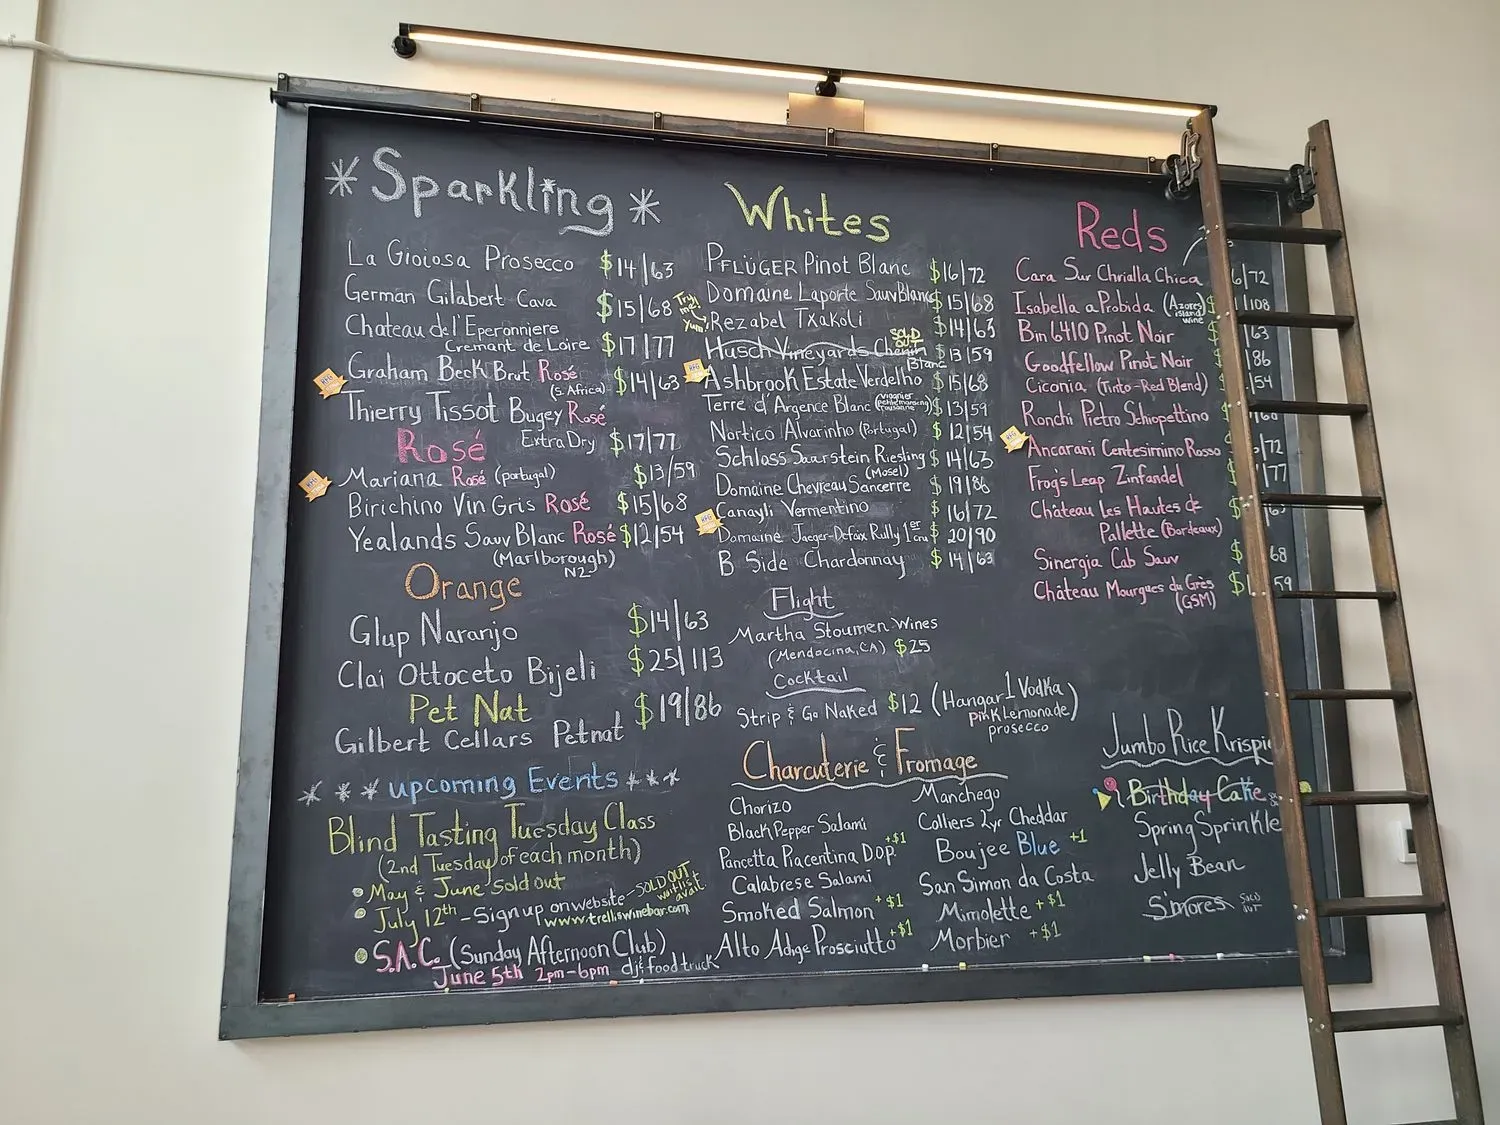 * Sparkling *
La Gioiosa Prosecco $14/63
German Gilabert Cava $15/68
Chateau de l'Eperonniere
Cremant de Loire $17/77
Graham Beck Brut Rosé $14/63
(S. Africa)
Thierry Tissot Bugey Rosé
Extra Dry $17/77
Rosé
Mariana Rosé (portugal) $13/59
Birichino Vin Gris Rosé $15/68
Yealands Sauv Blanc Rosé $12/54
(Marlborough)
NZ
Orange
Glup Naranjo $14/63
Clai Ottoceto Bijeli $25/113
Pet Nat
Gilbert Cellars Petnat $19/86
* * * upcoming Events * * *
Blind Tasting Tuesday Class
(2nd Tuesday of each month)
• May & June Sold out
• July 12th - Sign up on website - SOLD OUT
waitlist
avail.
www.trelliswinebar.com
• S.A.C. (Sunday Afternoon Club)
June 5th 2pm-6pm dj & food truck
Whites
PFLÜGER Pinot Blanc $16/72
Domaine Laporte Sauv Blanc $15/68
Try
me!
Yum!
Rezabel Txakoli $14/63
Husch Vineyards Chenin
Blanc $13/59
SOLD
OUT
Ashbrook Estate Verdelho $15/68
Terre d'Argence Blanc $13/59
Nortico Alvarinho (Portugal) $12/54
Schloss Saarstein Riesling $14/63
(Mosel)
Domaine Chevreau Sancerre $19/86
Canayli Vermentino $16/72
Domaine Jaeger-Defaix Rully 1er cru $20/90
B Side Chardonnay $14/63
Flight
Martha Stoumen Wines
(Mendocina, CA) $25
Cocktail
Strip & Go Naked $12 (Hangar 1 Vodka
pink Lemonade
prosecco)
Charcuterie & Fromage
Chorizo
Black Pepper Salami
Pancetta Piacentina D.O.P. +$1
Calabrese Salami
Smoked Salmon +$1
Alto Adige Prosciutto +$1
Manchego
Colliers 2yr Cheddar
Boujee Blue +1
San Simon da Costa
Mimolette +$1
Morbier +$1
Reds
Cara Sur Chrialla Chica 6/72
Isabella a Probida (Azores
island
wine) $ /108
Bin 6410 Pinot Noir /63
Goodfellow Pinot Noir /86
Ciconia (Tinto-Red Blend) /54
Ronchi Pietro Schiopettino
Ancarani Centesimino Rosso /72
Frog's Leap Zinfandel /77
Château Les Hautes de
Pallette (Bordeaux)
Sinergia Cab Sauv $ 68
Château Mourgues du Grès $1 59
(GSM)
Jumbo Rice Krispie
Birthday Cake
Spring Sprinkle
Jelly Bean
S'mores SOLD
OUT